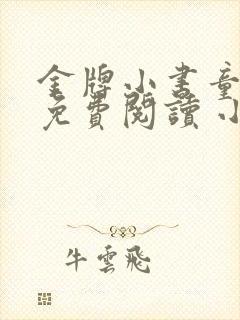 金牌小書童
免費閱讀小
牛雲飛